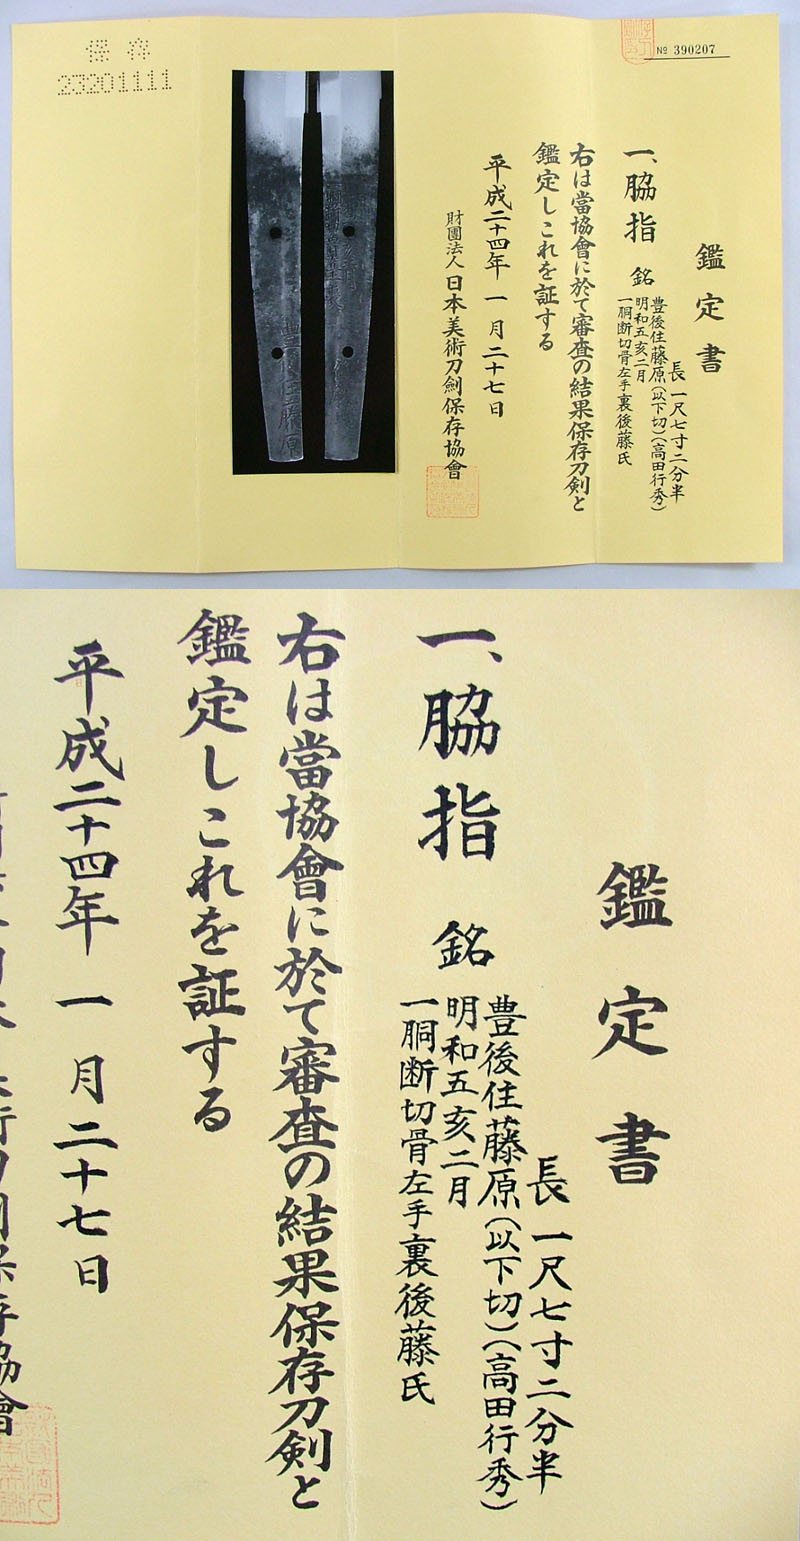 保存
23201111
№ 390207
鑑定書
一、脇指
長一尺七寸二分半
銘
豊後住藤原(以下切)(高田行秀)
明和五亥二月
一胴断切骨左手裏後藤氏
右は當協會に於て審査の結果保存刀剣と
鑑定しこれを証する
平成二十四年一月二十七日
財團法人日本美術刀劍保存協會
鑑定書
一、脇指
長一尺七寸二分半
銘
豊後住藤原(以下切)(高田行秀)
明和五亥二月
一胴断切骨左手裏後藤氏
右は當協會に於て審査の結果保存刀剣と
鑑定しこれを証する
平成二十四年一月二十七日